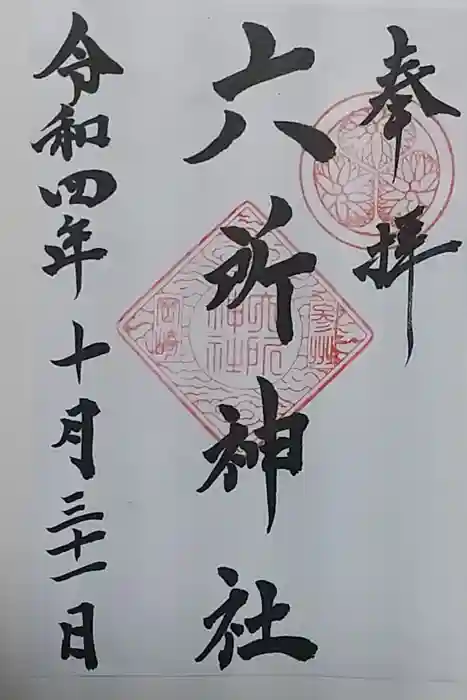 奉拝
六所神社
令和四年十月三十一日
参州
六所神社
岡崎